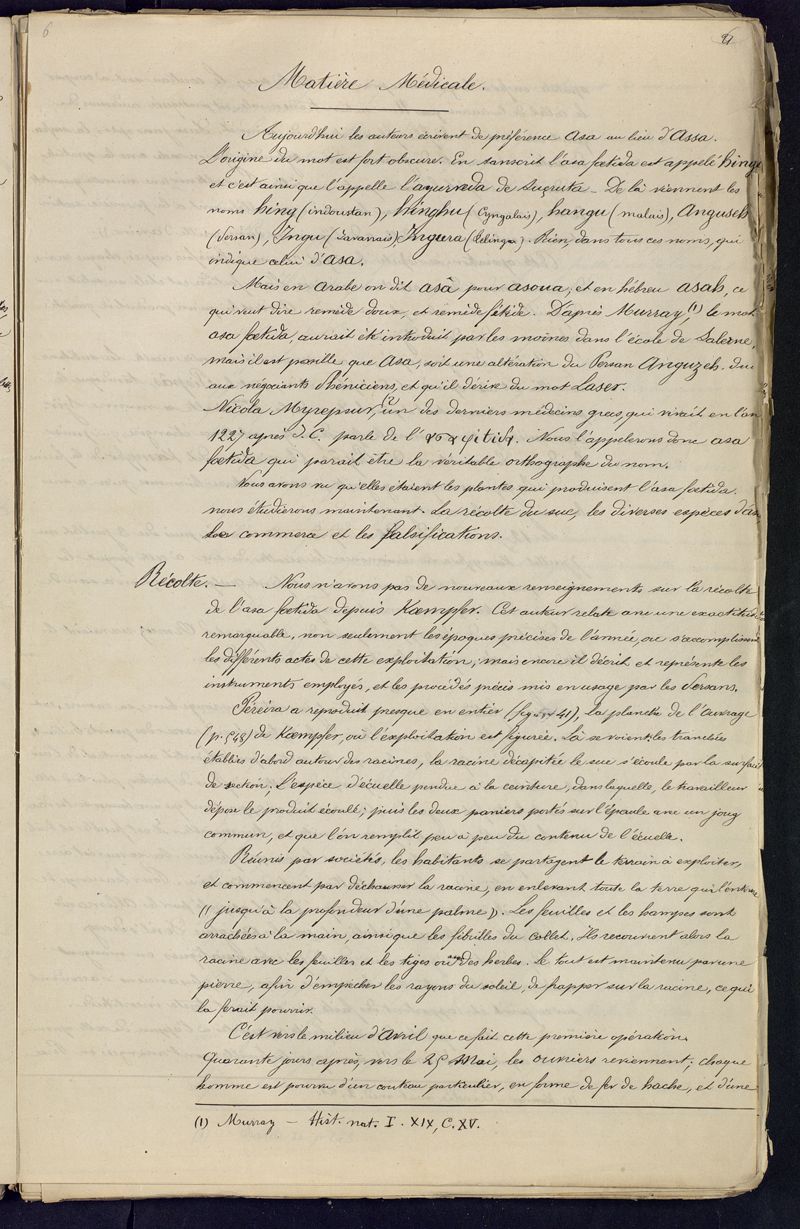 6
6
Matière Médicale.
Aujourd'hui les auteurs écrivent de préférence Asa au lieu d'Assa.
L'origine du mot est fort obscure. En sanscrit l'asa fœtida est appelé hing
et c'est ainsi que l'appelle l'ayurveda de Suçruta — De là viennent les
noms hing (indoustan), hinghu (Cyngalais), hangu (malais), Anguseh
(Persan), Ingu (Javanais) Ingura (Telinga). Rien, dans tous ces noms, qui
indique celui d'asa.
Mais en arabe on dit asâ pour asoua, et en hébreu asah, ce
qui veut dire remède doux, et remède fétide. D'après Murray, (1) le mot
asa fœtida, aurait été introduit par les moines dans l'école de Salerne,
mais il est possible que Asa, soit une altération du Persan Anguzeh. due
aux négociants Phéniciens, et qu'il dérive du mot Laser.
Nicola Myrepsur, un des derniers médecins grecs, qui vivait en l'an
1227 après J.C. parle de l' Nous l'appelerons donc asa
fœtida qui parait être la véritable orthographe du nom.
Nous avons vu qu'elles étaient les plantes qui produisent l'asa fœtida.
nous étudierons maintenant. La récolte du suc, les diverses espèces d'as
commerce et les falsifications.
Récolte. — Nous n'avons pas de nouveaux renseignements sur la récolte
de l'asa fœtida depuis Kœmpfer. Cet auteur relate avec une exactitude
remarquable, non seulement les époques précises de l'année, où s'accomplissent
les différents actes de cette exploitation, mais encore il décrit et représente les
instruments employés, et les procédés précis mis en usage par les Persans.
Péréira a reproduit presque en entier (figure 41), la planche de l'ouvrage
(p. 548) de Kœmpfer, où l'exploitation est figurée. Là se voient les tranchées
établies d'abord autour des racines, la racine décapitée le suc s'écoule par la surface
de section; L'espèce d'écuelle pendue à la ceinture, dans laquelle, le travailleur
dépose le produit écoulé; puis les deux paniers portés sur l'épaule avec un joug
commun, et que l'on remplit peu à peu du contenu de l'écuelle.
Réunis par sociétés, les habitants se partagent le terrain à exploiter,
et commencent par déchausser la racine, en enlevant toute la terre qui l'entoure
(( jusqu'à la profondeur d'une palme )). Les feuilles et les hampes sont
arrachées à la main, ainsi que les fibrilles du collet. Ils recouvrent alors la
racine avec les feuilles et les tiges ou avec des herbes. Le tout est maintenu par une
pierre, afin d'empêcher les rayons du soleil, de frapper sur la racine, ce qui
la ferait pourrir.
C'est vers le milieu d'Avril que ce fait cette première opération.
Quarante jours après, vers le 25 Mai, les ouvriers reviennent; chaque
homme est pourvu d'un couteau particulier, en forme de fer de hache, et d'une
(1) Murray — Hist. nat. I. XIX, C. XV.